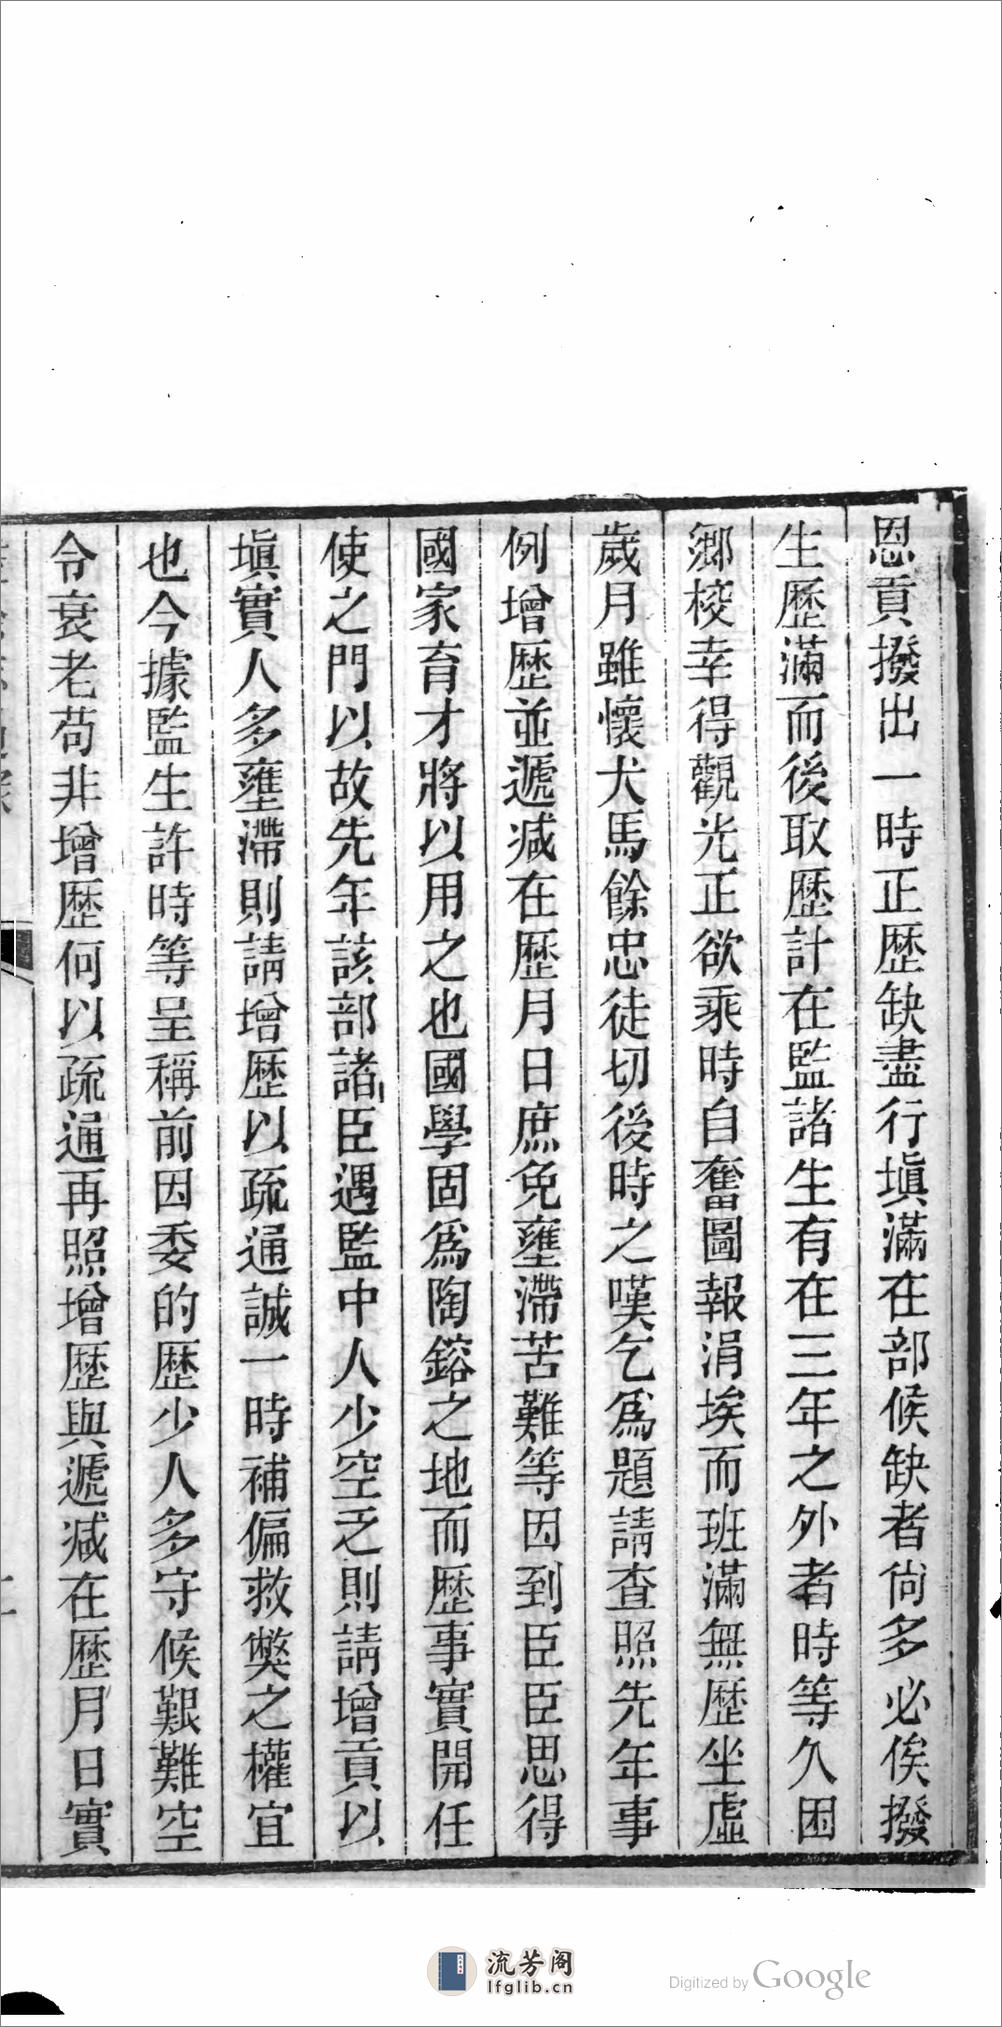 恩貢撥出一時正歴缺盡行塡滿在部候缺者尙多必俟撥
生歷滿而後取歷計在監諸生有在三年之外者時等久困
鄉校幸得觀光正欲乘時自奮圖報涓埃而班滿無歷坐虛
歲月雖懷犬馬餘忠徒切後時之嘆乞爲題請查照先年事
例增歷並遞減在歷月日庶免壅滯苦難等因到臣臣思得
國家育才將以用之也國學固爲陶鎔之地而歷事實開任
使之門以故先年該部諸臣遇監中人少空乏則請增貢以
塡實人多壅滯則請增歷以疏通誠一時補偏救獘之權宜
也今據監生許時等呈稱前因委的歷少人多守候艱難空
令衰老苟非增歷何以疏通再照增歷與遞减在歷月日實
流芳阁
lfglib.cn
Digitized by Google